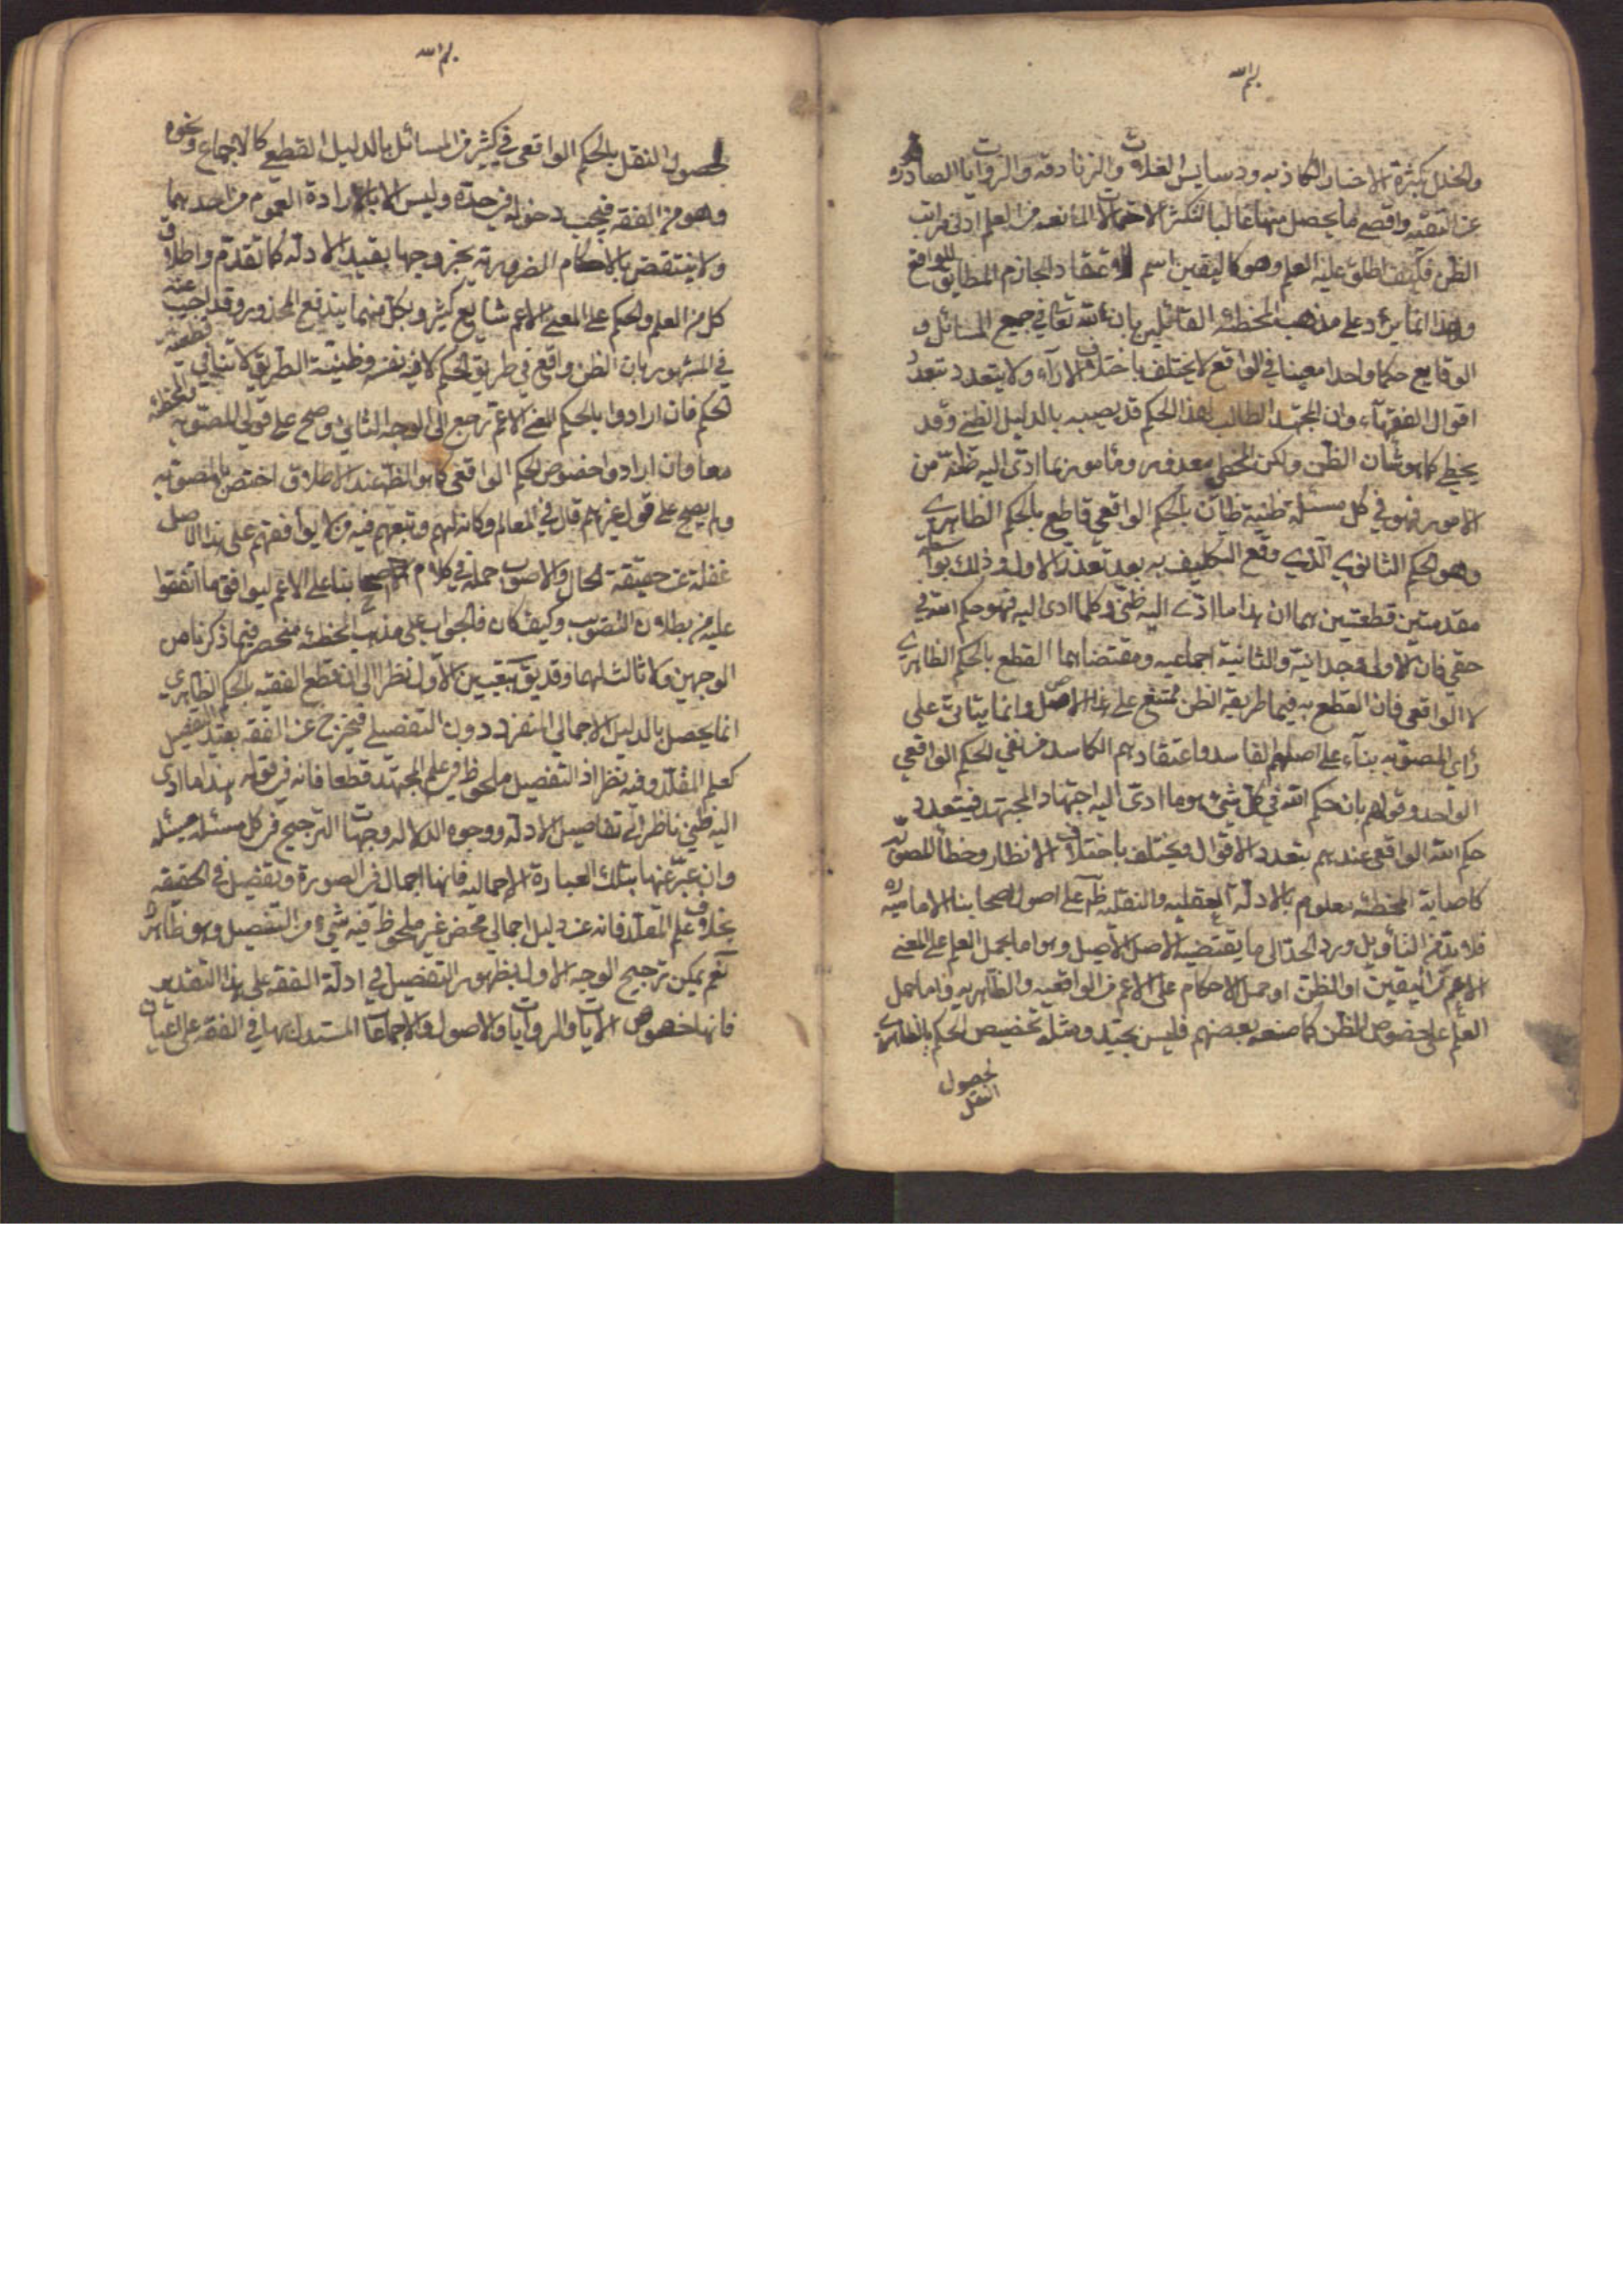 بسم الله
والخلل بكثرة الاخبار الكاذبه ودسايس الغلات والزنادقه والروايات الصادره
عن التقيه واقصى ما يحصل منها غالبا لتكثر الاحتمالات المانعه من العلم ادنى مراتب
الظن فكيف اطلق عليه العلم وهو كاليقين اسم للاعتقاد الجازم المطابق للواقع
وهذا انما يرد على مذهب المخطئه القائلين بان لله تعالى في جميع المسائل و
الوقايع حكما واحدا معينا في الواقع لا يختلف باختلاف الاراء ولا يتعدد بتعدد
اقوال الفقهآء وان المجتهد الطالب لهذا الحكم قد يصيبه بالدليل الظني وقد
يخطي كما هو شأن الظن ولكن المخطي معذور ومأمور بما ادى اليه ظنه من
الامور فهو في كل مسئلة ظنية ظان بالحكم الواقعي قاطع بالحكم الظاهري
وهو الحكم الثانوي الذي وقع التكليف به بعد تعذر الاول وذلك بواسطة
مقدمتين قطعتين هما ان هذا ما ادى اليه ظني وكلما ادى اليه فهو حكم الله في
حقي فان الاولى وجدانية والثانية اجماعيه ومقتضاهما القطع بالحكم الظاهري
لا الواقعي فان القطع به فيما طريقه الظن ممتنع على هذا الاصل وانما يتاتى على
رأي المصوبه بنآء على اصلهم الفاسد واعتقادهم الكاسد من نفي الحكم الواقعي
الواحد وقولهم بان حكم الله في كل شيء هو ما ادى اليه اجتهاد المجتهد فيتعدد
حكم الله الواقعي عندهم بتعدد الاقوال ويختلف باختلاف الانظار وخطأ المصوبه
كاصابة المخطئه معلوم بالادلة العقليه والنقليه على اصول اصحابنا الاماميه
فلا بد من التأويل ورد الحد الى ما يقتضيه الاصل الاصيل وهو اما بحمل العلم على المعنى
الاعم من اليقين او الظن او حمل الاحكام على الاعم من الواقعيه والظاهريه واما حمل
العلم على خصوص الظن كما صنعه بعضهم فليس بجيد ومثله تخصيص الحكم بالظاهري
لحصول
النقل
بسم الله
لحصول النقل بالحكم الواقعي في كثير من المسائل بالدليل القطعي كالاجماع ونحوه
وهو من الفقه فيجب دخوله في حده وليس الا بالارادة العموم من احدهما
ولا ينتقض بالاحكام الضروريه بخروجها بقيد الادله كما تقدم واطلاق
كل من العلم والحكم على المعنى الاعم شايع كثير وبكل منهما يندفع المحذور وقد اجيب عنه
في المشهور بان الظن واقع في طريق الحكم لا فيه نفسه وظنية الطريق لا تنافي قطعية
الحكم فان ارادوا بالحكم المعنى الاعم رجع الى الوجه الثاني وصح على قولي المصوبه والمخطئه
معا وان ارادوا خصوص الحكم الواقعي كما هو الظ عند الاطلاق اختص بالمصوبه
ولم يصح على قول غيرهم قال في المعالم وكانه لهم وتبعهم فيه من لا يوافقهم على هذا الاصل
غفلة عن حقيقة الحال والاصوب حمله في كلام بنا على الاعم ليوافق ما اتفقوا
عليه من بطلان التصويب وكيف كان فالجواب على مذهب المخطئه منحصر فيما ذكرنا من
الوجهين ولا ثالث لهما وقد يق بتعيين الاول نظرا الى ان قطع الفقيه بالحكم الظاهري
انما يحصل بالدليل الاجمالي المنفرد دون التفصيلي فيخرج عن الفقه بقيد التفصيل
كعلم المقلد وفيه نظر اذ التفصيل ملحوظ في علم المجتهد قطعا فانه في قوله هذا ما ادى
اليه ظني ناظر الى تفاصيل الادله ووجوه الدلاله وجهات الترجيح في كل مسئله مسئله
وان عبر عنها بتلك العبارة الاجماليه فانها اجمال في الصورة وتفصيل في الحقيقه
بخلاف علم المقلد فانه عن دليل اجمالي محض غير ملحوظ فيه شيء من التفصيل وهو ظاهر
نعم يمكن ترجيح الوجه الاول بظهور التفصيل في ادلة الفقه على هذا التقدير
فانها خصوص الايات والروايات والاصول والاجماعات المستدل بها في الفقه على